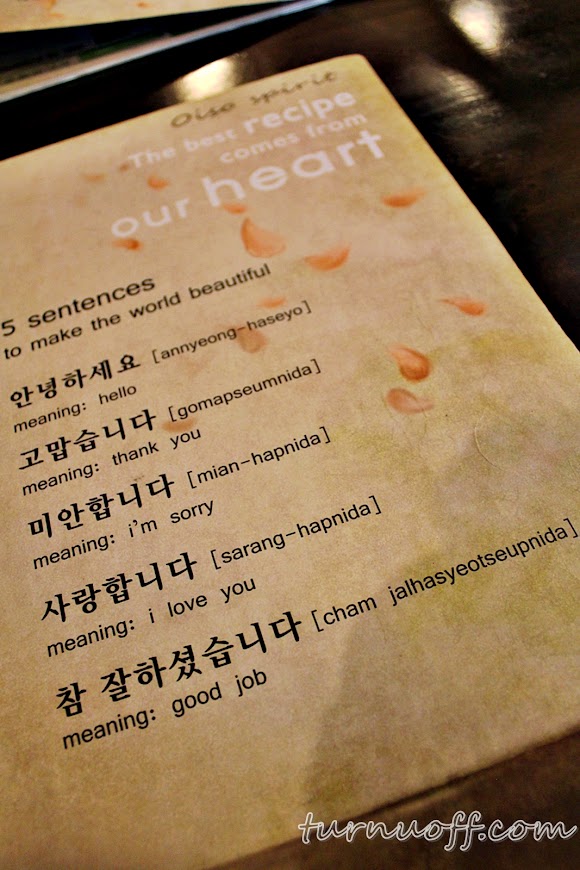 Oiso spirit
The best recipe
comes from
our heart
5 sentences
to make the world beautiful
안녕하세요 [annyeong-haseyo]
meaning: hello
고맙습니다 [gomapseumnida]
meaning: thank you
미안합니다 [mian-hapnida]
meaning: i'm sorry
사랑합니다 [sarang-hapnida]
meaning: i love you
참 잘하셨습니다 [cham jalhasyeotseupnida]
meaning: good job
turnuoff.com